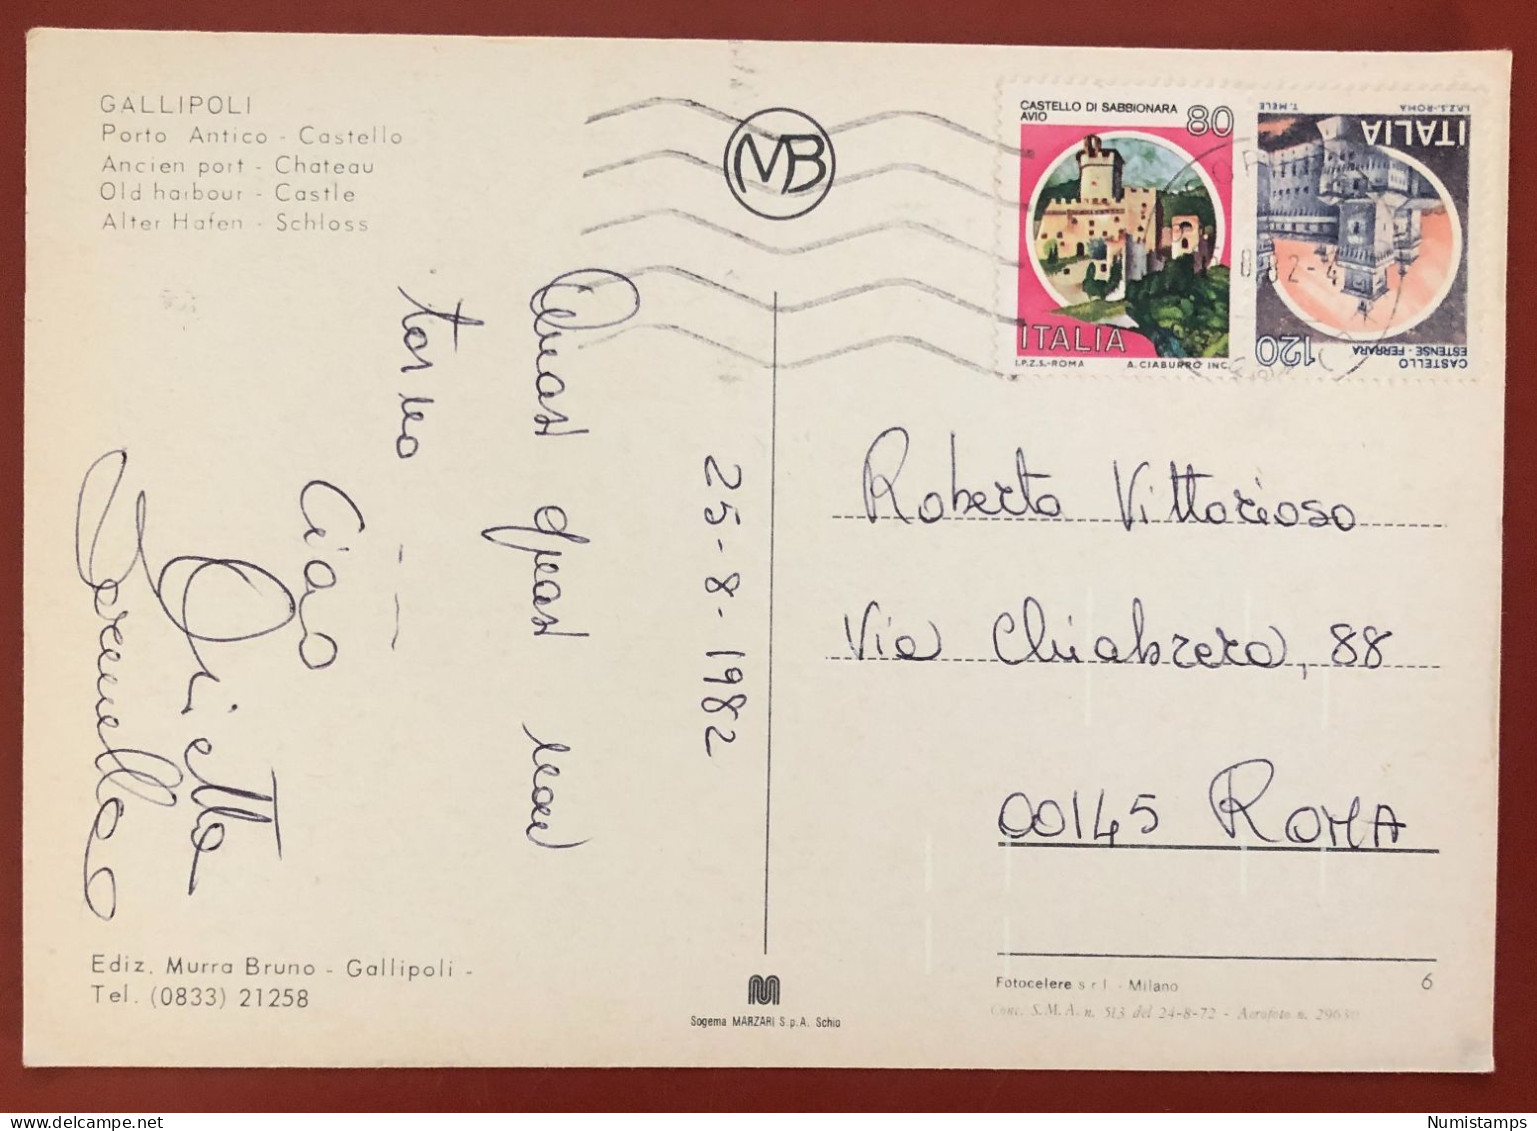 GALLIPOLI
Porto Antico - Castello
Ancien port - Chateau
Old harbour - Castle
Alter Hafen - Schloss
MB
CASTELLO DI SABBIONARA
AVIO
80
ITALIA
I.P.Z.S.-ROMA A. CIABURRO INC.
I.P.Z.S.-ROMA T. MELE
ITALIA
120
CASTELLO
ESTENSE - FERRARA
8.82-4
25-8-1982
quasi quasi non
torno - -
Ciao
Orietta
Roberto Vittorioso
Via Chiabrera, 88
00145 ROMA
Ediz. Murra Bruno - Gallipoli -
Tel. (0833) 21258
Sogema MARZARI S.p.A. Schio
Fotocelere s r l - Milano
6
Conc. S.M.A. n. 513 del 24-8-72 - Aerofoto n.
Numistamps
www.delcampe.net